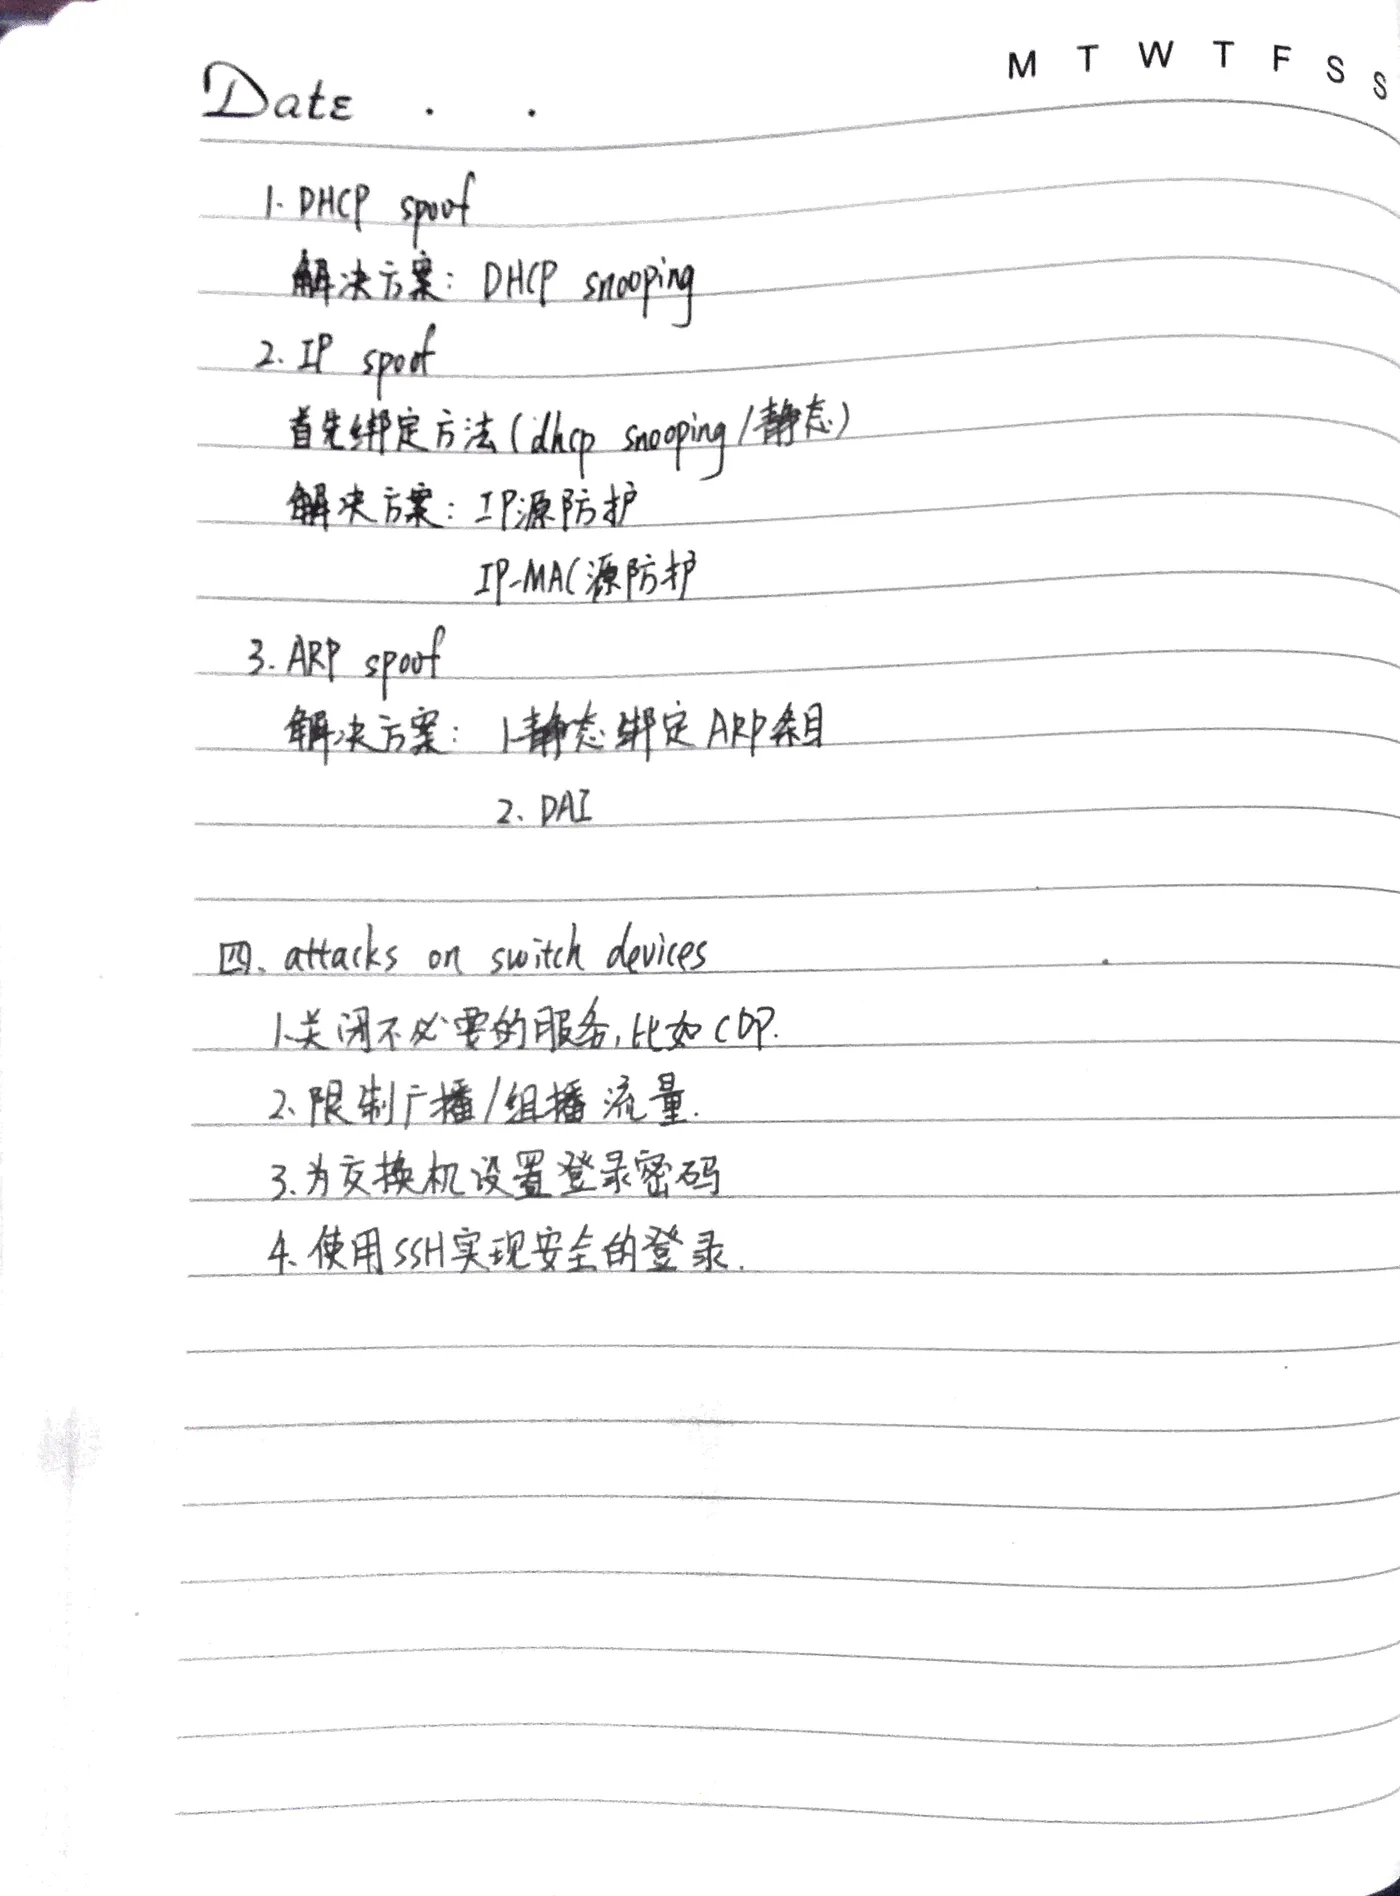 M T W T F S S
Date . .
1. DHCP spoof
解决方案: DHCP snooping
2. IP spoof
首先绑定方法(dhcp snooping/静态)
解决方案: IP源防护
IP-MAC源防护
3. ARP spoof
解决方案: 1.静态绑定ARP条目
2. DAI
四. attacks on switch devices
1.关闭不必要的服务,比如CDP.
2.限制广播/组播流量.
3.为交换机设置登录密码
4.使用SSH实现安全的登录.